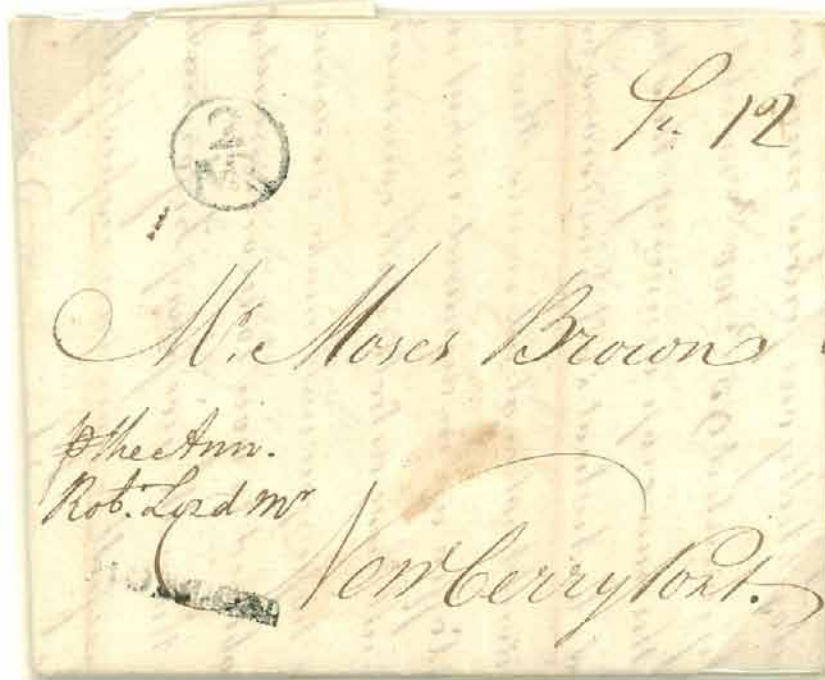 12
2
Mr. Moses Brown
p the Ann.
Rob. Lord Mr
Newberry Port.